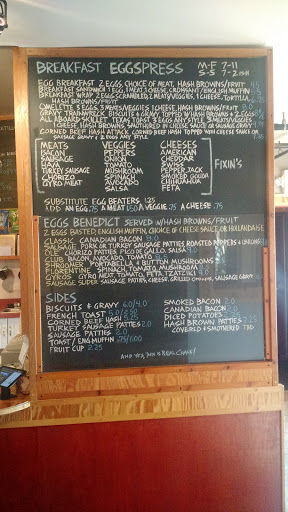 BREAKFAST EGGSPRESS M-F 7-11
S-S 7-2ISH
EGG BREAKFAST 2 EGGS, CHOICE OF MEAT, HASH BROWNS/FRUIT
BREAKFAST SANDWICH 1 EGG, 1 MEAT, 1 CHEESE, CROISSANT/ENGLISH MUFFIN
BREAKFAST WRAP 2 EGGS SCRAMBLED, 2 MEATS/VEGGIES, 1 CHEESE, TORTILLA,
HASH BROWNS/FRUIT
OMELETTE 3 EGGS, 3 MEATS/VEGGIES, 1 CHEESE, HASH BROWNS/FRUIT
GRAVY TRAINWRECK BISCUITS & GRAVY TOPPED W/HASH BROWNS & 2 EGGS
ALL ABOARD SKILLET TEXAS TOAST, 3 EGGS ANY STYLE, 3 MEATS/VEGGIES,
1 CHEESE, HASH BROWNS SMOTHERED IN CHEESE OR SAUSAGE GRAVY
CORNED BEEF HASH ATTACK CORNED BEEF HASH TOPPED WITH CHEESE SAUCE OR
SAUSAGE GRAVY & 2 EGGS ANY STYLE
MEATS VEGGIES CHEESES
BACON PEPPERS AMERICAN
SAUSAGE ONION CHEDDAR
HAM TOMATO SWISS
TURKEY SAUSAGE MUSHROOM PEPPER JACK
CHORIZO SPINACH SMOKED GOUDA
GYRO MEAT AVOCADO CHIHUAHUA
SALSA FETA
FIXIN'S
SUBSTITUTE EGG BEATERS 1.25
ADD AN EGG .75 A MEAT 1.50 A VEGGIE .75 A CHEESE .75
EGGS BENEDICT SERVED W/HASH BROWNS/FRUIT
2 EGGS BASTED, ENGLISH MUFFIN, CHOICE OF CHEESE SAUCE OR HOLLANDAISE
CLASSIC CANADIAN BACON
SAUSAGE PORK OR TURKEY SAUSAGE PATTIES, ROASTED PEPPERS & ONIONS
OLE CHORIZO PATTIES, PICO DE GALLO, SALSA
CLUB BACON, AVOCADO, TOMATO
SHROOMER PORTABELLA & BUTTON MUSHROOMS
FLORENTINE SPINACH, TOMATO, MUSHROOM
GYROS GYRO MEAT, TOMATO, FETA, TZATZIKI
SAUSAGE SUPER SAUSAGE PATTIES, CHEESE, GRILLED ONIONS, SAUSAGE GRAVY
SIDES
BISCUITS & GRAVY 6.0/4.0
FRENCH TOAST
CORNED BEEF HASH
TURKEY SAUSAGE PATTIES 2.0
SAUSAGE PATTIES 2.0
TOAST/ENG MUFFIN .75/1.00
FRUIT CUP 2.25
SMOKED BACON 2.0
CANADIAN BACON
DICED POTATOES
HASH BROWN PATTIES 2.25
COVERED & SMOTHERED TBD